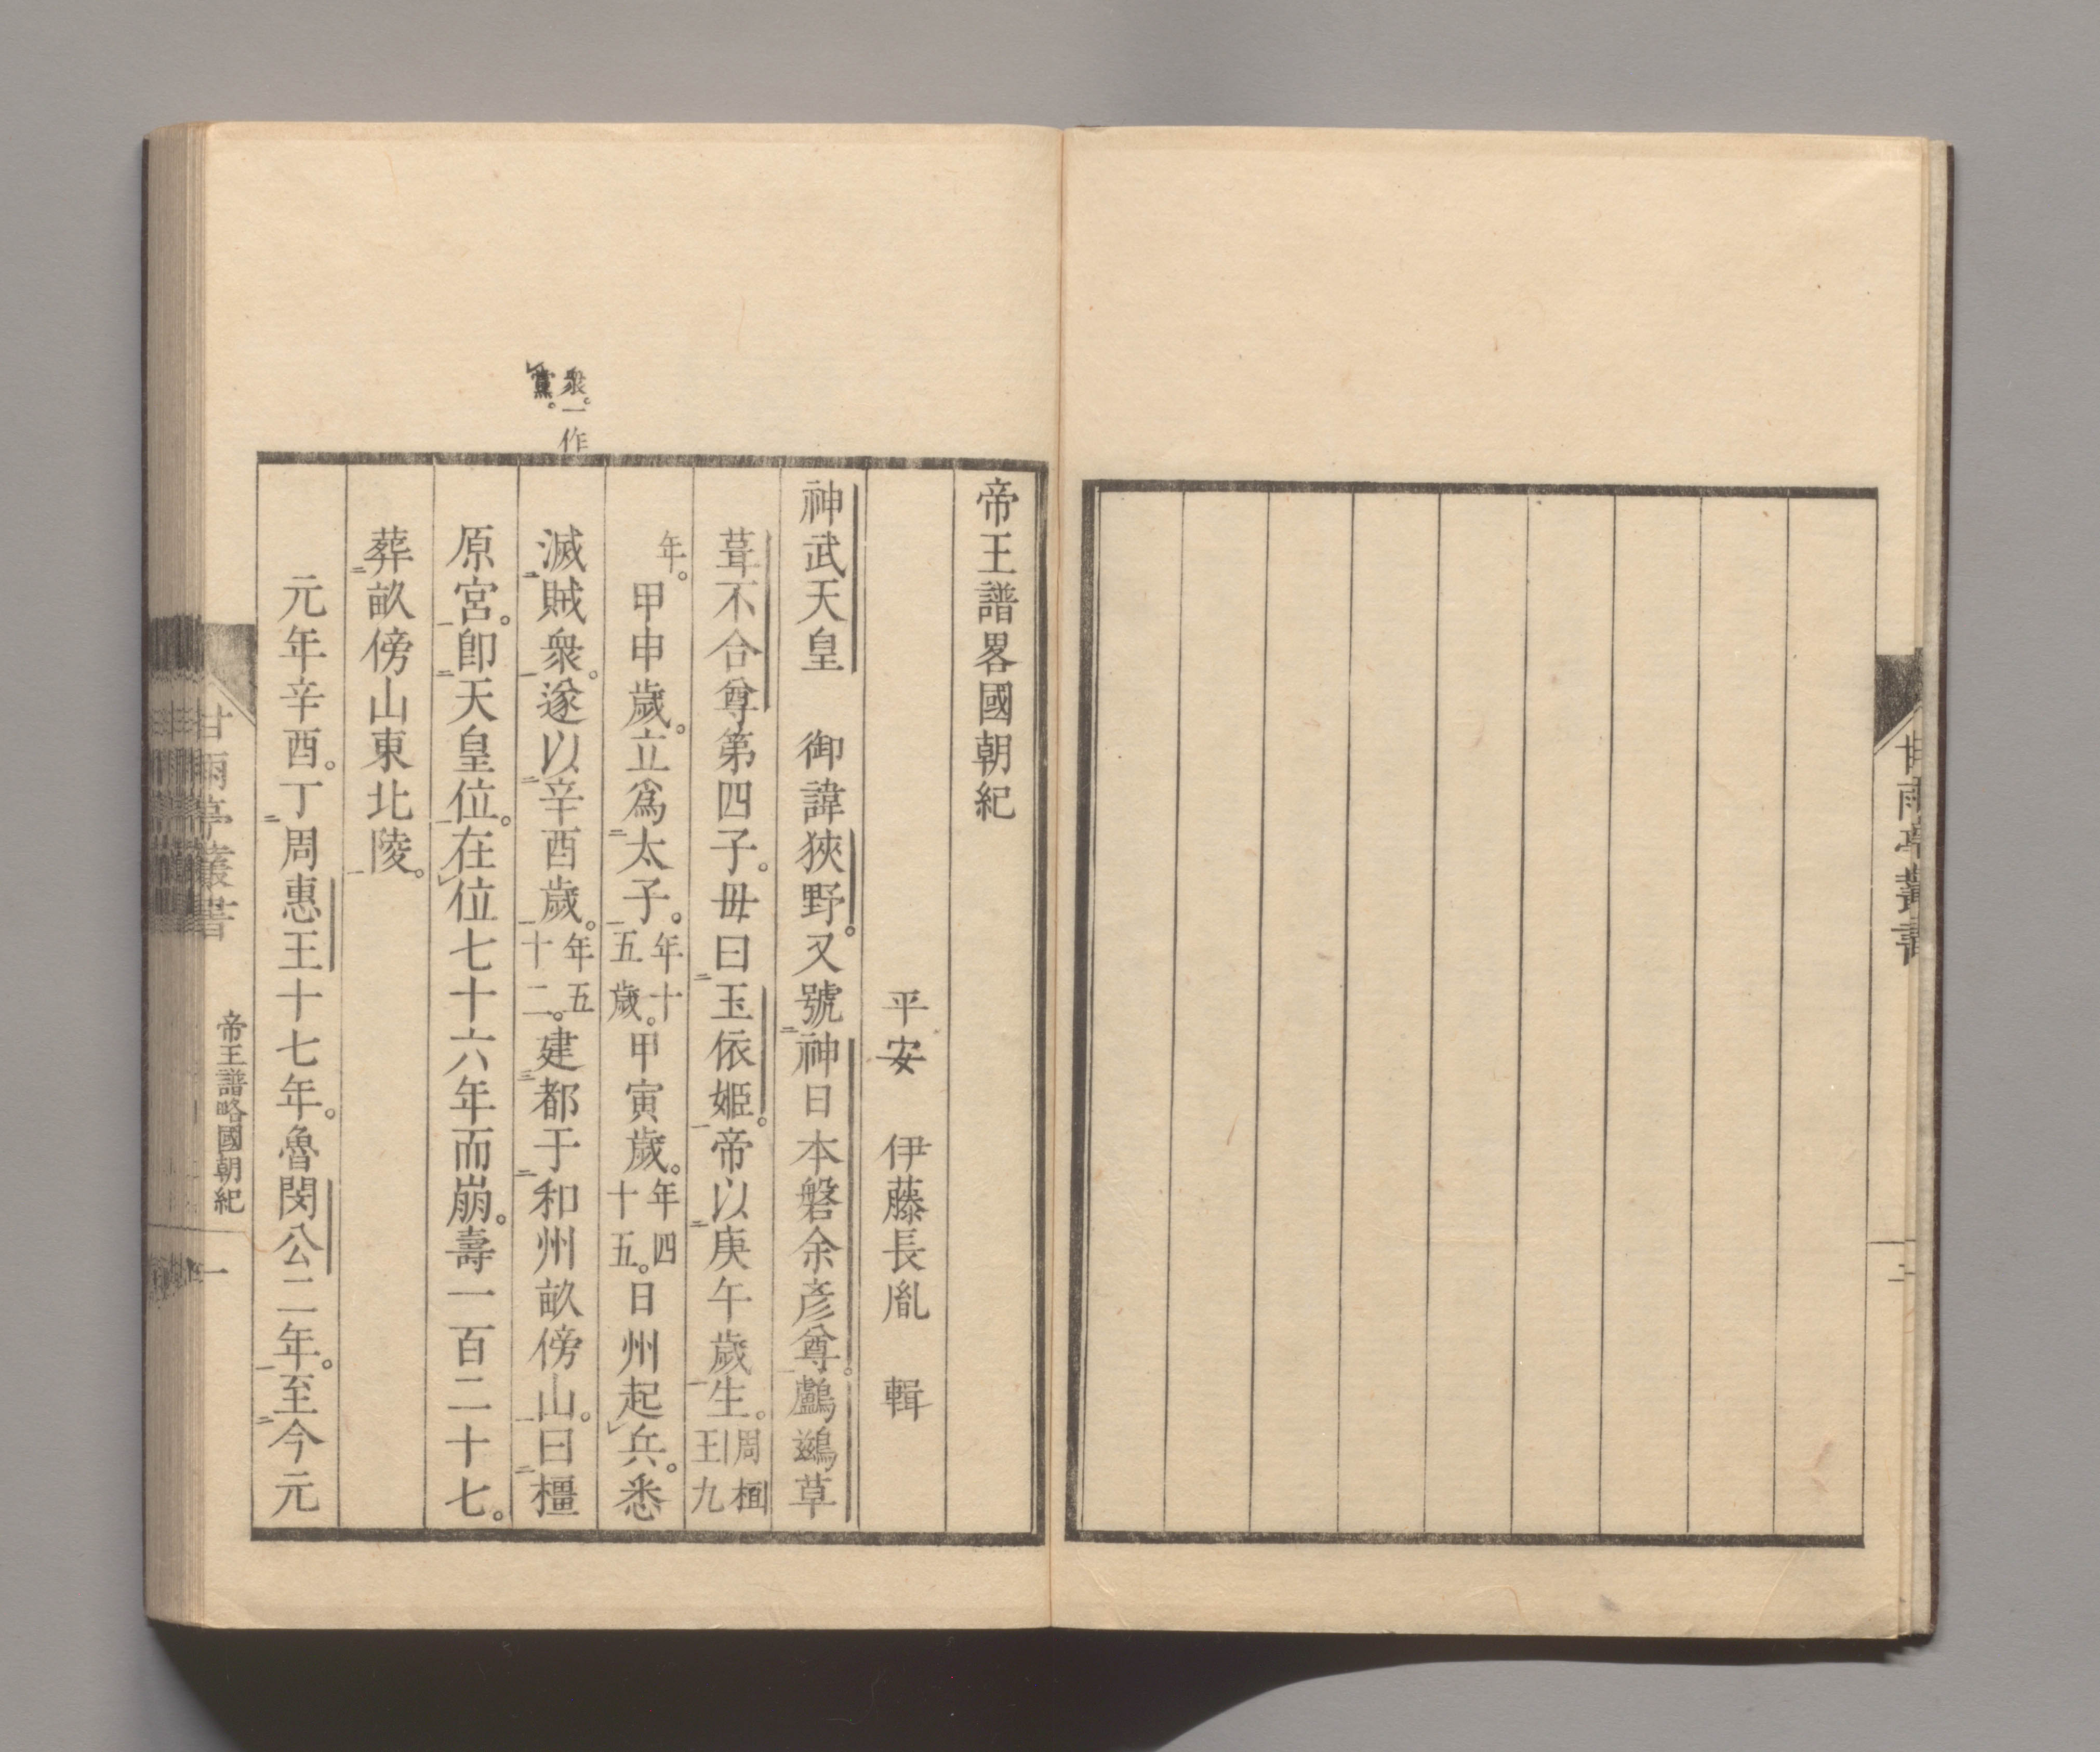 甘雨亭叢書
二
帝王譜畧國朝紀
平安 伊藤長胤 輯
神武天皇 御諱狹野。又號神日本磐余彦尊。鸕鷀草
葺不合尊第四子。毋曰玉依姬。帝以庚午歲生。周桓王九
年。甲申歲。立爲太子。年十五歲。甲寅歲。年四十五。日州起兵。悉
滅賊衆。遂以辛酉歲。年五十二。建都于和州畝傍山。曰橿
原宮。卽天皇位。在位七十六年而崩。壽一百二十七。
葬畝傍山東北陵。
元年辛酉。丁周惠王十七年。魯閔公二年。至今元
衆。一作
黨。
甘雨亭叢書
帝王譜略國朝紀
一